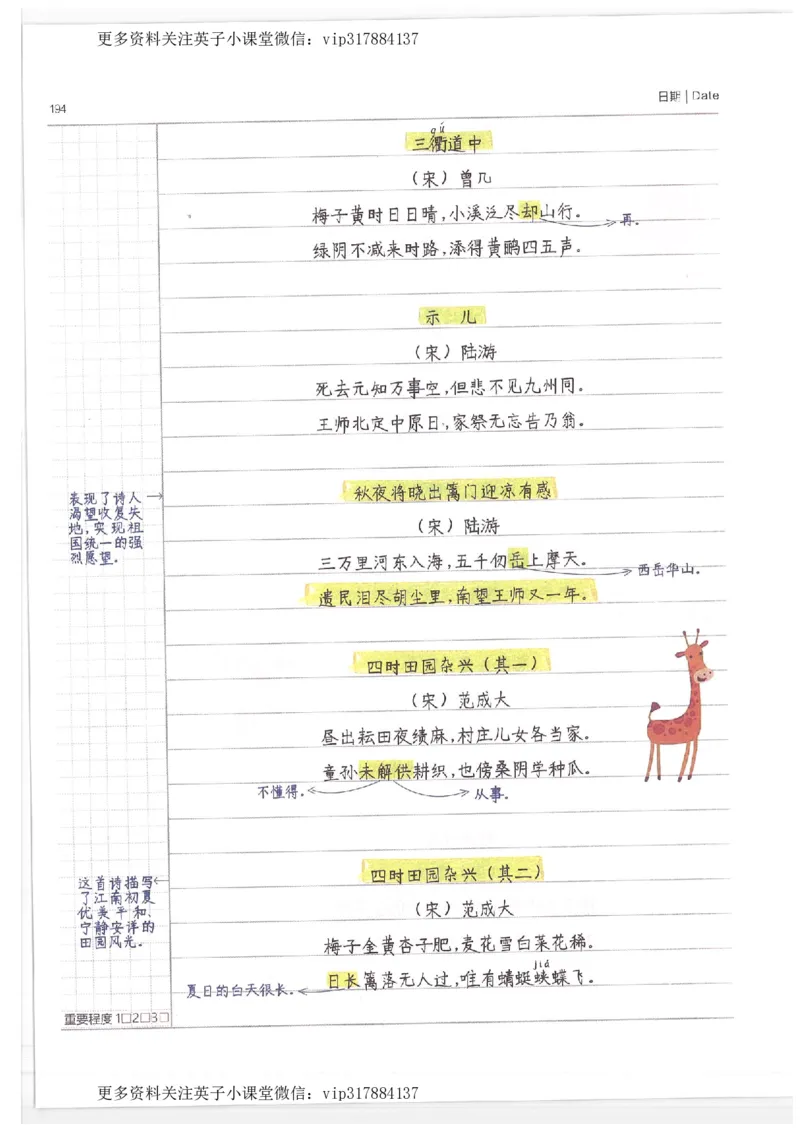 更多资料关注英子小课堂微信：vip317884137
194
日期 | Date
qú
三衢道中
（宋）曾几
梅子黄时日日晴，小溪泛尽却山行。
再。
绿阴不减来时路，添得黄鹂四五声。
示 儿
（宋）陆游
死去元知万事空，但悲不见九州同。
王师北定中原日，家祭无忘告乃翁。
秋夜将晓出篱门迎凉有感
（宋）陆游
三万里河东入海，五千仞岳上摩天。
西岳华山。
遗民泪尽胡尘里，南望王师又一年。
表现了诗人
渴望收复失
地，实现祖
国统一的强
烈愿望。
四时田园杂兴（其一）
（宋）范成大
昼出耘田夜绩麻，村庄儿女各当家。
童孙未解供耕织，也傍桑阴学种瓜。
不懂得。
从事。
四时田园杂兴（其二）
（宋）范成大
梅子金黄杏子肥，麦花雪白菜花稀。
jiá
日长篱落无人过，唯有蜻蜓蛱蝶飞。
夏日的白天很长。
这首诗描写
了江南初夏
优美平和、
宁静安详的
田园风光。
重要程度 1□2□3□
更多资料关注英子小课堂微信：vip317884137